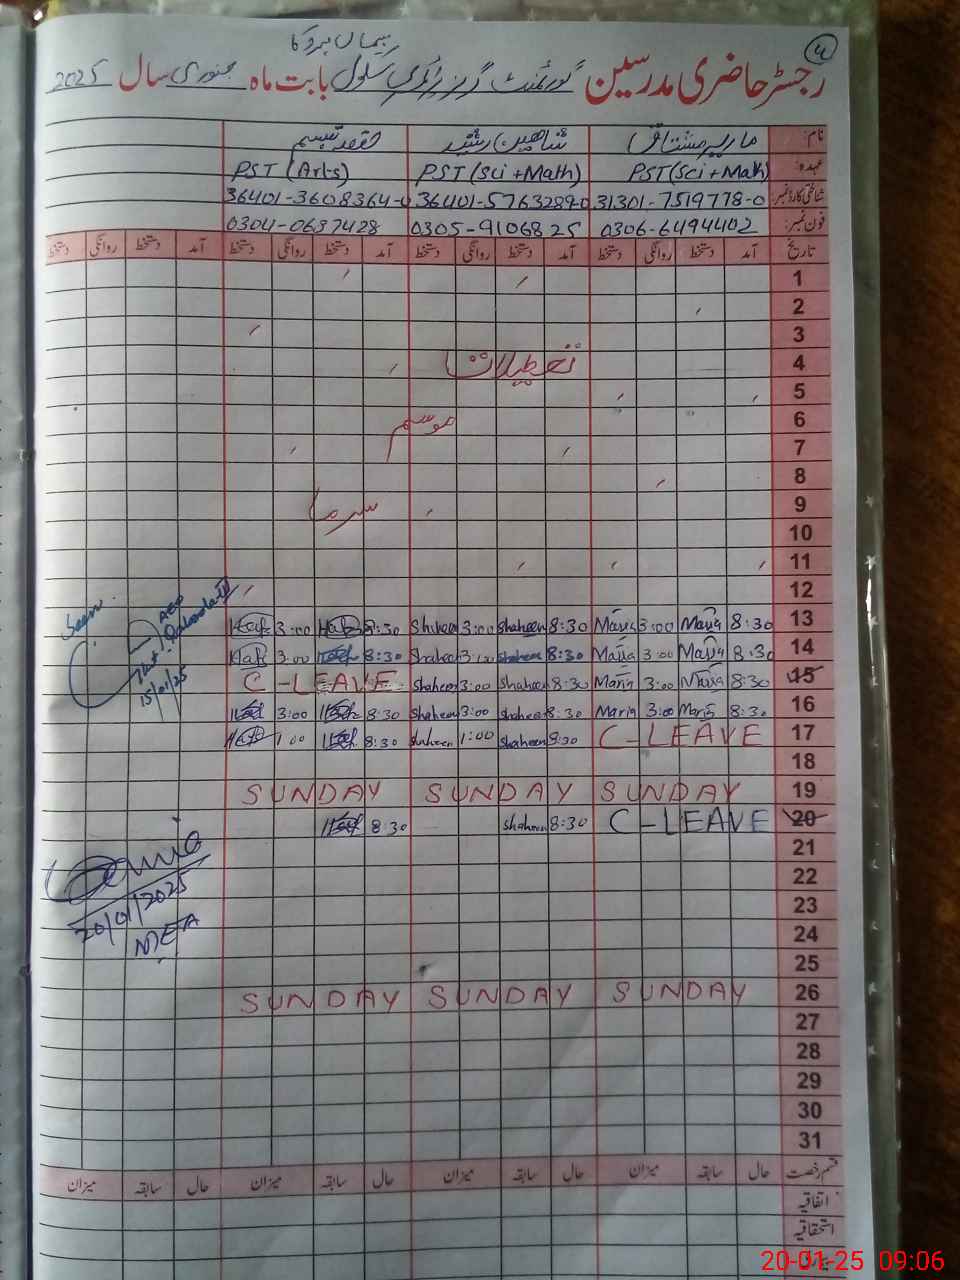 ریماں ہروکا
④
رجسٹر حاضری مدرسین گورنمنٹ گرلز پرائمری سکول بابت ماہ جنوری سال 2025
نام: ماریہ مشتاق شاھین رشید تبسم
عہدہ: PST (Sci + Math) PST (Sci + Math) PST (Arts)
شناختی کارڈ نمبر: 31301-7519778-0 36401-5763289-0 36401-3608364-0
فون نمبر: 0306-6494402 0305-9106825 0304-0637428
تاریخ آمد دستخط روانگی دستخط آمد دستخط روانگی دستخط آمد دستخط روانگی دستخط آمد دستخط روانگی دستخط
1
2
3
4 تعطیلات
5
6 موسم
7
8
9 سرما
10
11
12
13 8:30 Maria 3:00 Maria 8:30 Shaheen 3:00 Shaheen 8:30 3:00
14 8:30 Maria 3:00 Maria 8:30 Shaheen 3:00 Shaheen 8:30 3:00
15 8:30 Maria 3:00 Maria 8:30 Shaheen 3:00 Shaheen C-LEAVE
16 8:30 Maria 3:00 Maria 8:30 Shaheen 3:00 Shaheen 8:30 3:00
17 C-LEAVE 8:30 Shaheen 1:00 Shaheen 8:30 1:00
18
19 SUNDAY SUNDAY SUNDAY
20 C-LEAVE 8:30 Shaheen 8:30
21
22
23
24
25
26 SUNDAY SUNDAY SUNDAY
27
28
29
30
31
Seen
AEO
15/01/25
20/01/2025
MEA
قسم رخصت حال سابقہ میزان حال سابقہ میزان حال سابقہ میزان حال سابقہ میزان
اتفاقیہ
استحقاقیہ
20-01-25 09:06